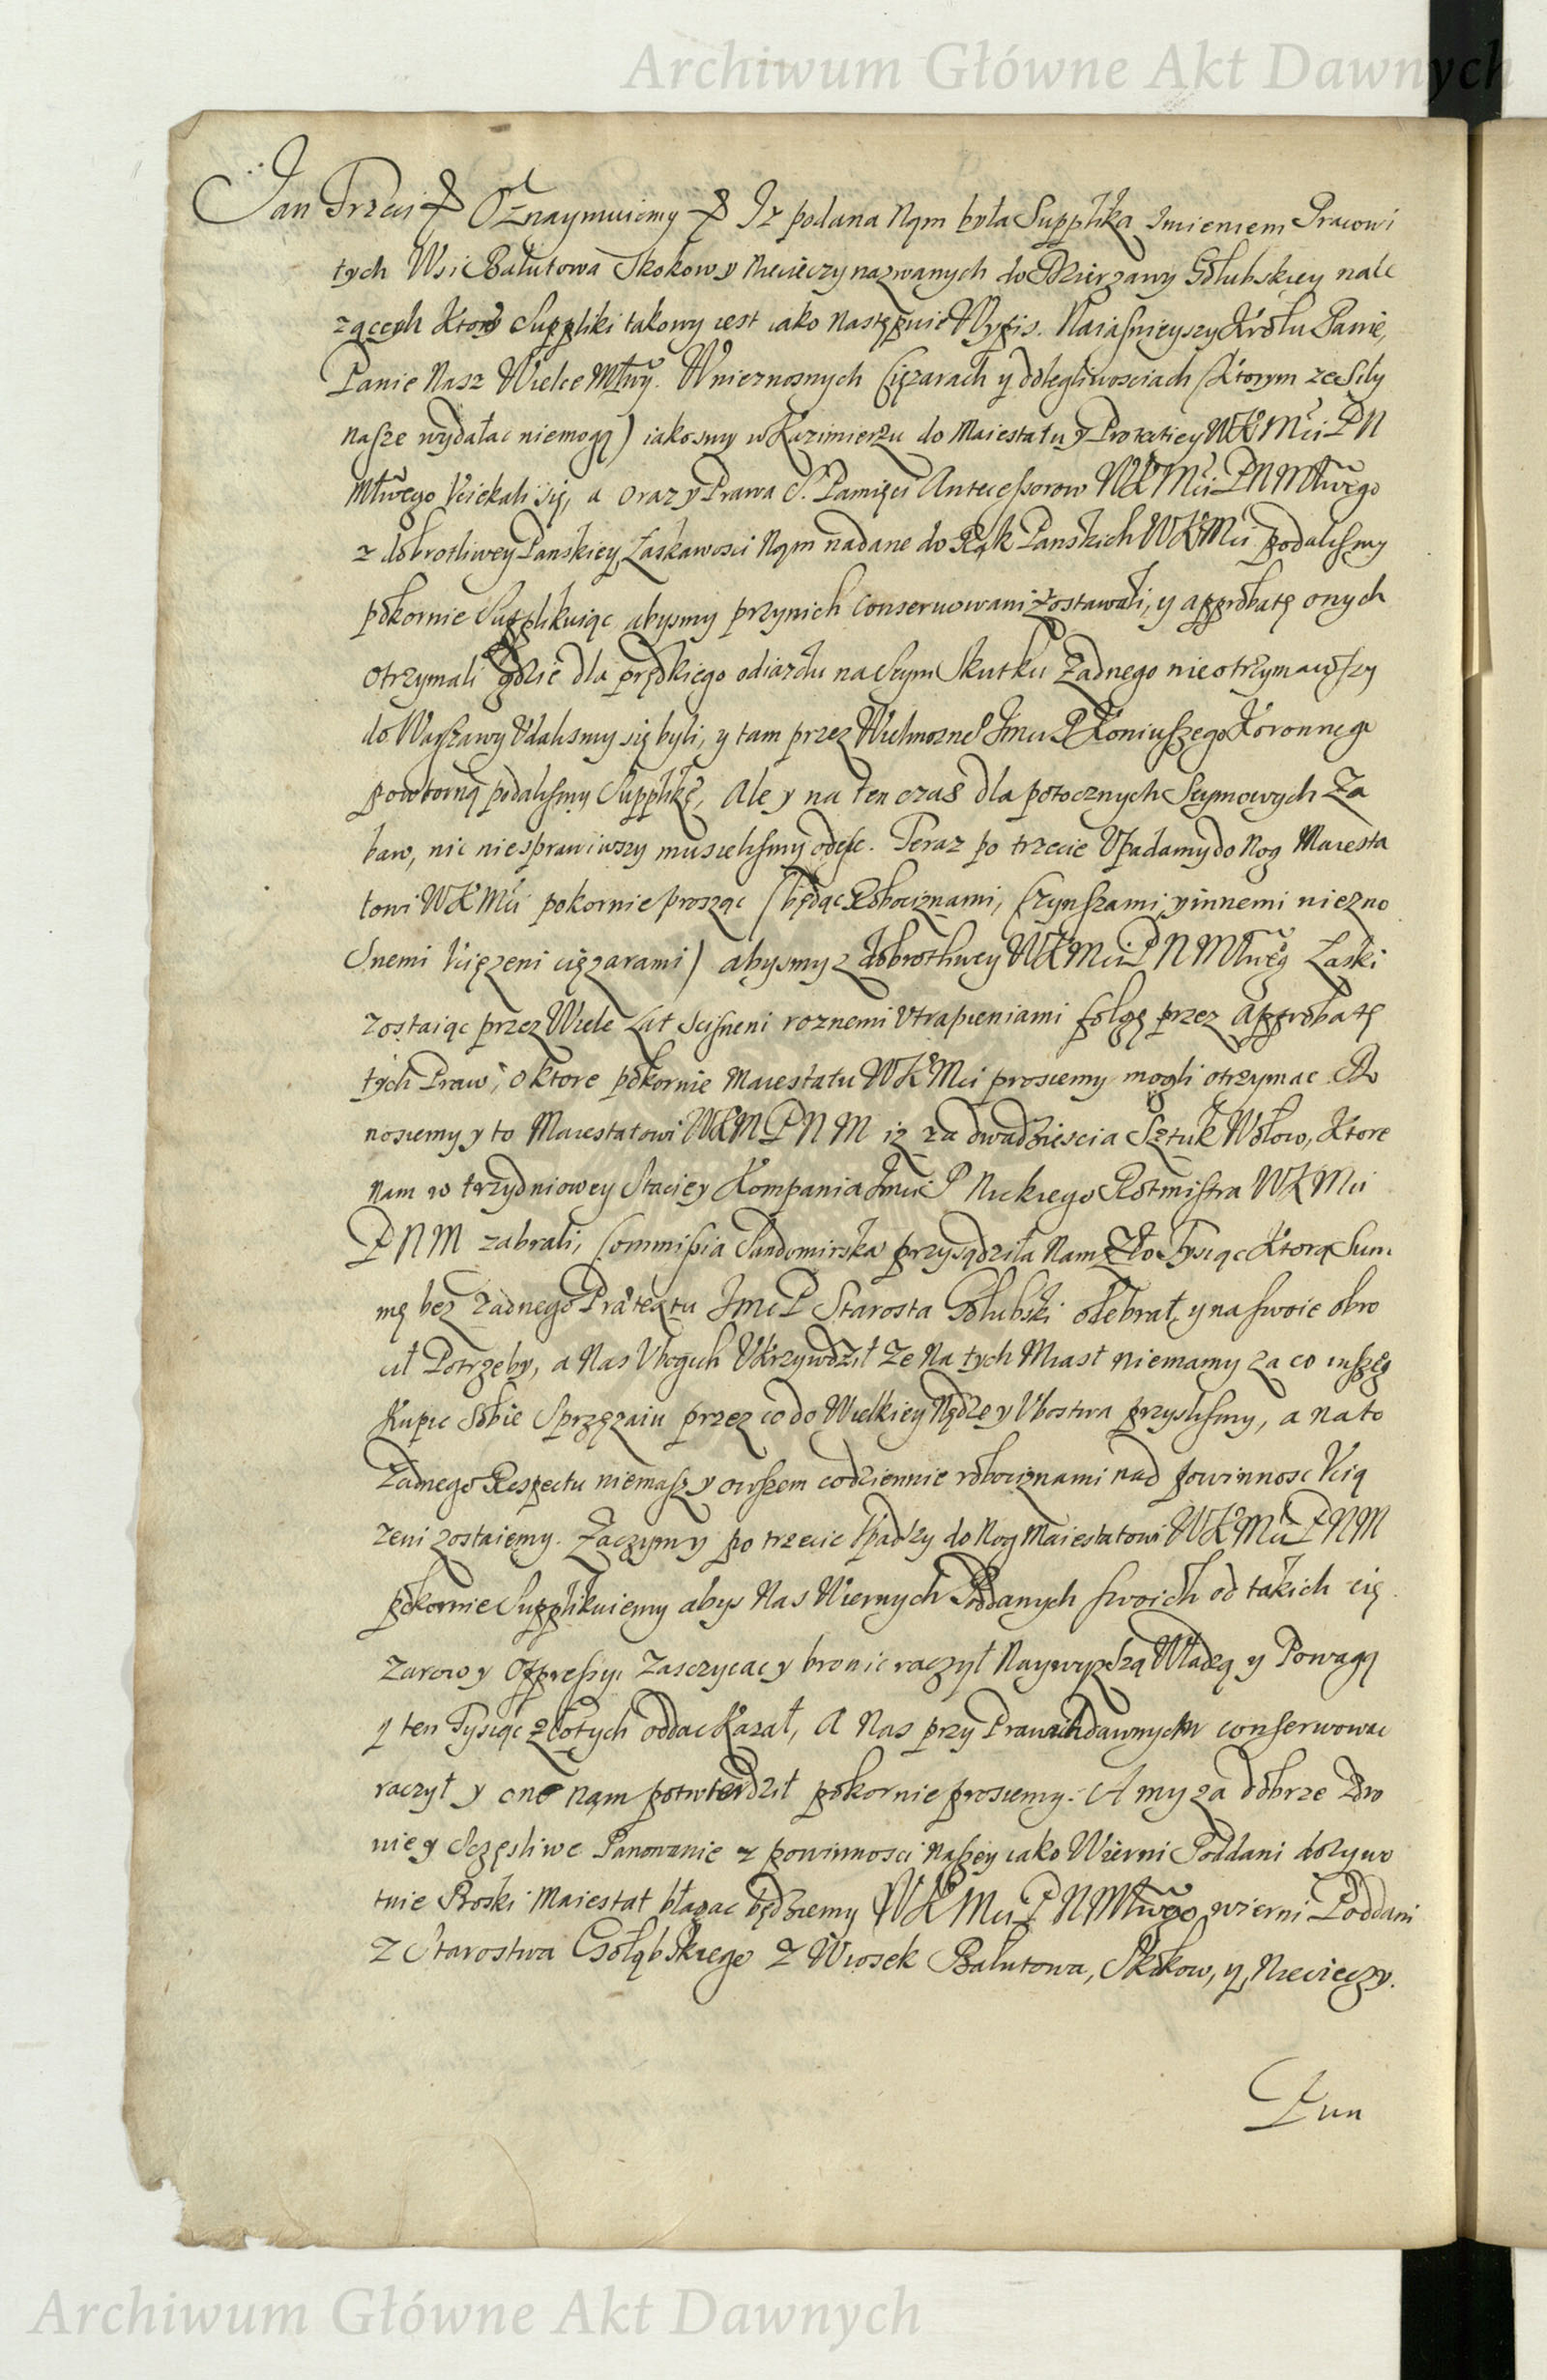 Archiwum Główne Akt Dawnych
Jan Trzeci Oznaymuiemy Iz podana Nąm była Supplika Imieniem Pracowi
tych Wsi Bałutowa Skokow y Niecieczy nazwanych do Dzierzawy Gołubskiey nale
zących Ktorey Suppliki takowy iest iako Następuie Wypis. Naiasnieyszy Krolu Panie,
Panie Nasz Wielce Młwy. W nieznosnych Ciężarach y dolegliwosciach (Ktorym ze Siły
nasze wydałac niemogą) iakosmy w Kazimierzu do Maiestatu y Protectiey WKMci PN
Młwego Vciekali się, a oraz y Prawa S. Pamięci Antecessorow WKMci PNMłwego
z dobrotliwey Panskiey Łaskawosci Nąm nadane do Rąk Panskich WKMci podalismy
pokornie Supplikuiąc abysmy przy nich conseruowani zostawali, y approbatę onych
otrzymali gdzie dla prędkiego odiazdu na Seym Skutku Zadnego nie otrzymawszy
do Warszawy Vdalismy się byli, y tam przez Wielmozne° Imci P Koniuszego Koronnego
powtorną podalismy Supplikę, Ale y na ten czas dla potocznych Seymowych Za
baw, nic niesprawiwszy musielismy odeysc. Teraz po trzecie Vpadamy do Nog Maiesta
towi WKMci pokornie prosząc (będąc Robociznami, Czynszami, y innemi niezno
snemi Vciązeni cięzarami) abysmy z dobrotliwey WKMci PN Młweg° Łaski
zostaiąc przez Wiele Lat scisneni roznemi Vtrapieniami folgę przez Approbatę
tych Praw, o ktore pokornie Maiestatu WKMci prosiemy mogli otrzymac. Do
nosiemy y to Maiestatowi WKM PNM iz za dwadziescia Sztuk Wołow, Ktore
nam w trzydniowey Staciey Kompania Imci P Rotmistra WKMci
PNM zabrali, Commissia Sandomirska przysądziła Nam Zło Tysiąc Ktorą Sum
mę bez zadnego Prætextu Imc P Starosta Gołubski odebrał y na swoie obro
cił Potrzeby, a Nas Vbogich Vkrzywdził Ze Na tych Miast niemamy za co inszeg°
Kupic Sobie Sprzęzaiu przez co do Wielkiey Nędze y Vbostwa przyslismy, a na to
Zadnego Respectu niemasz y owszem codziennie robociznami nad powinnosc Vcią
zeni zostaiemy. Zaczym y po trzecie Vpadszy do Nog Maiestatowi WKMci PNM
pokornie Supplikuiemy abys Nas Wiernych Poddanych swoich od takich cię
zarow y Oppressyi Zasczycac y bronic raczył Naywyzszą Władzą y Powagą
y ten Tysiąc złotych oddac Kazał, A Nas przy Prawach dawnych conserwowac
raczył y one nąm potwierdził pokornie prosiemy. A my za dobrze Zdro
wie y Sczęsliwe Panowanie z powinnosci naszey iako Wierni Poddani dozywo
tnie Boski Maiestat błagac będziemy WKMci PN Młwego wierni Poddani
Z Starostwa Gołąbskiego Z Wiosek Bałutowa, Skokow, y Niecieczy.
Archiwum Główne Akt Dawnych